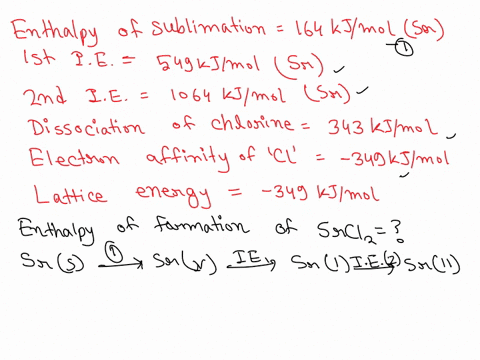 Enthalpy of sublimation = 164 kJ/mol (Sr)
①
1st I.E. = 549 kJ/mol (Sr) ✓
2nd I.E. = 1064 kJ/mol (Sr) ✓
Dissociation of chlorine = 343 kJ/mol ✓
Electron affinity of 'Cl' = -349 kJ/mol ✓
Lattice energy = -349 kJ/mol
Enthalpy of formation of SrCl2 = ?
Sr(s) ①→ Sr(v) IE→ Sr(I) I.E.(2)→ Sr(II)